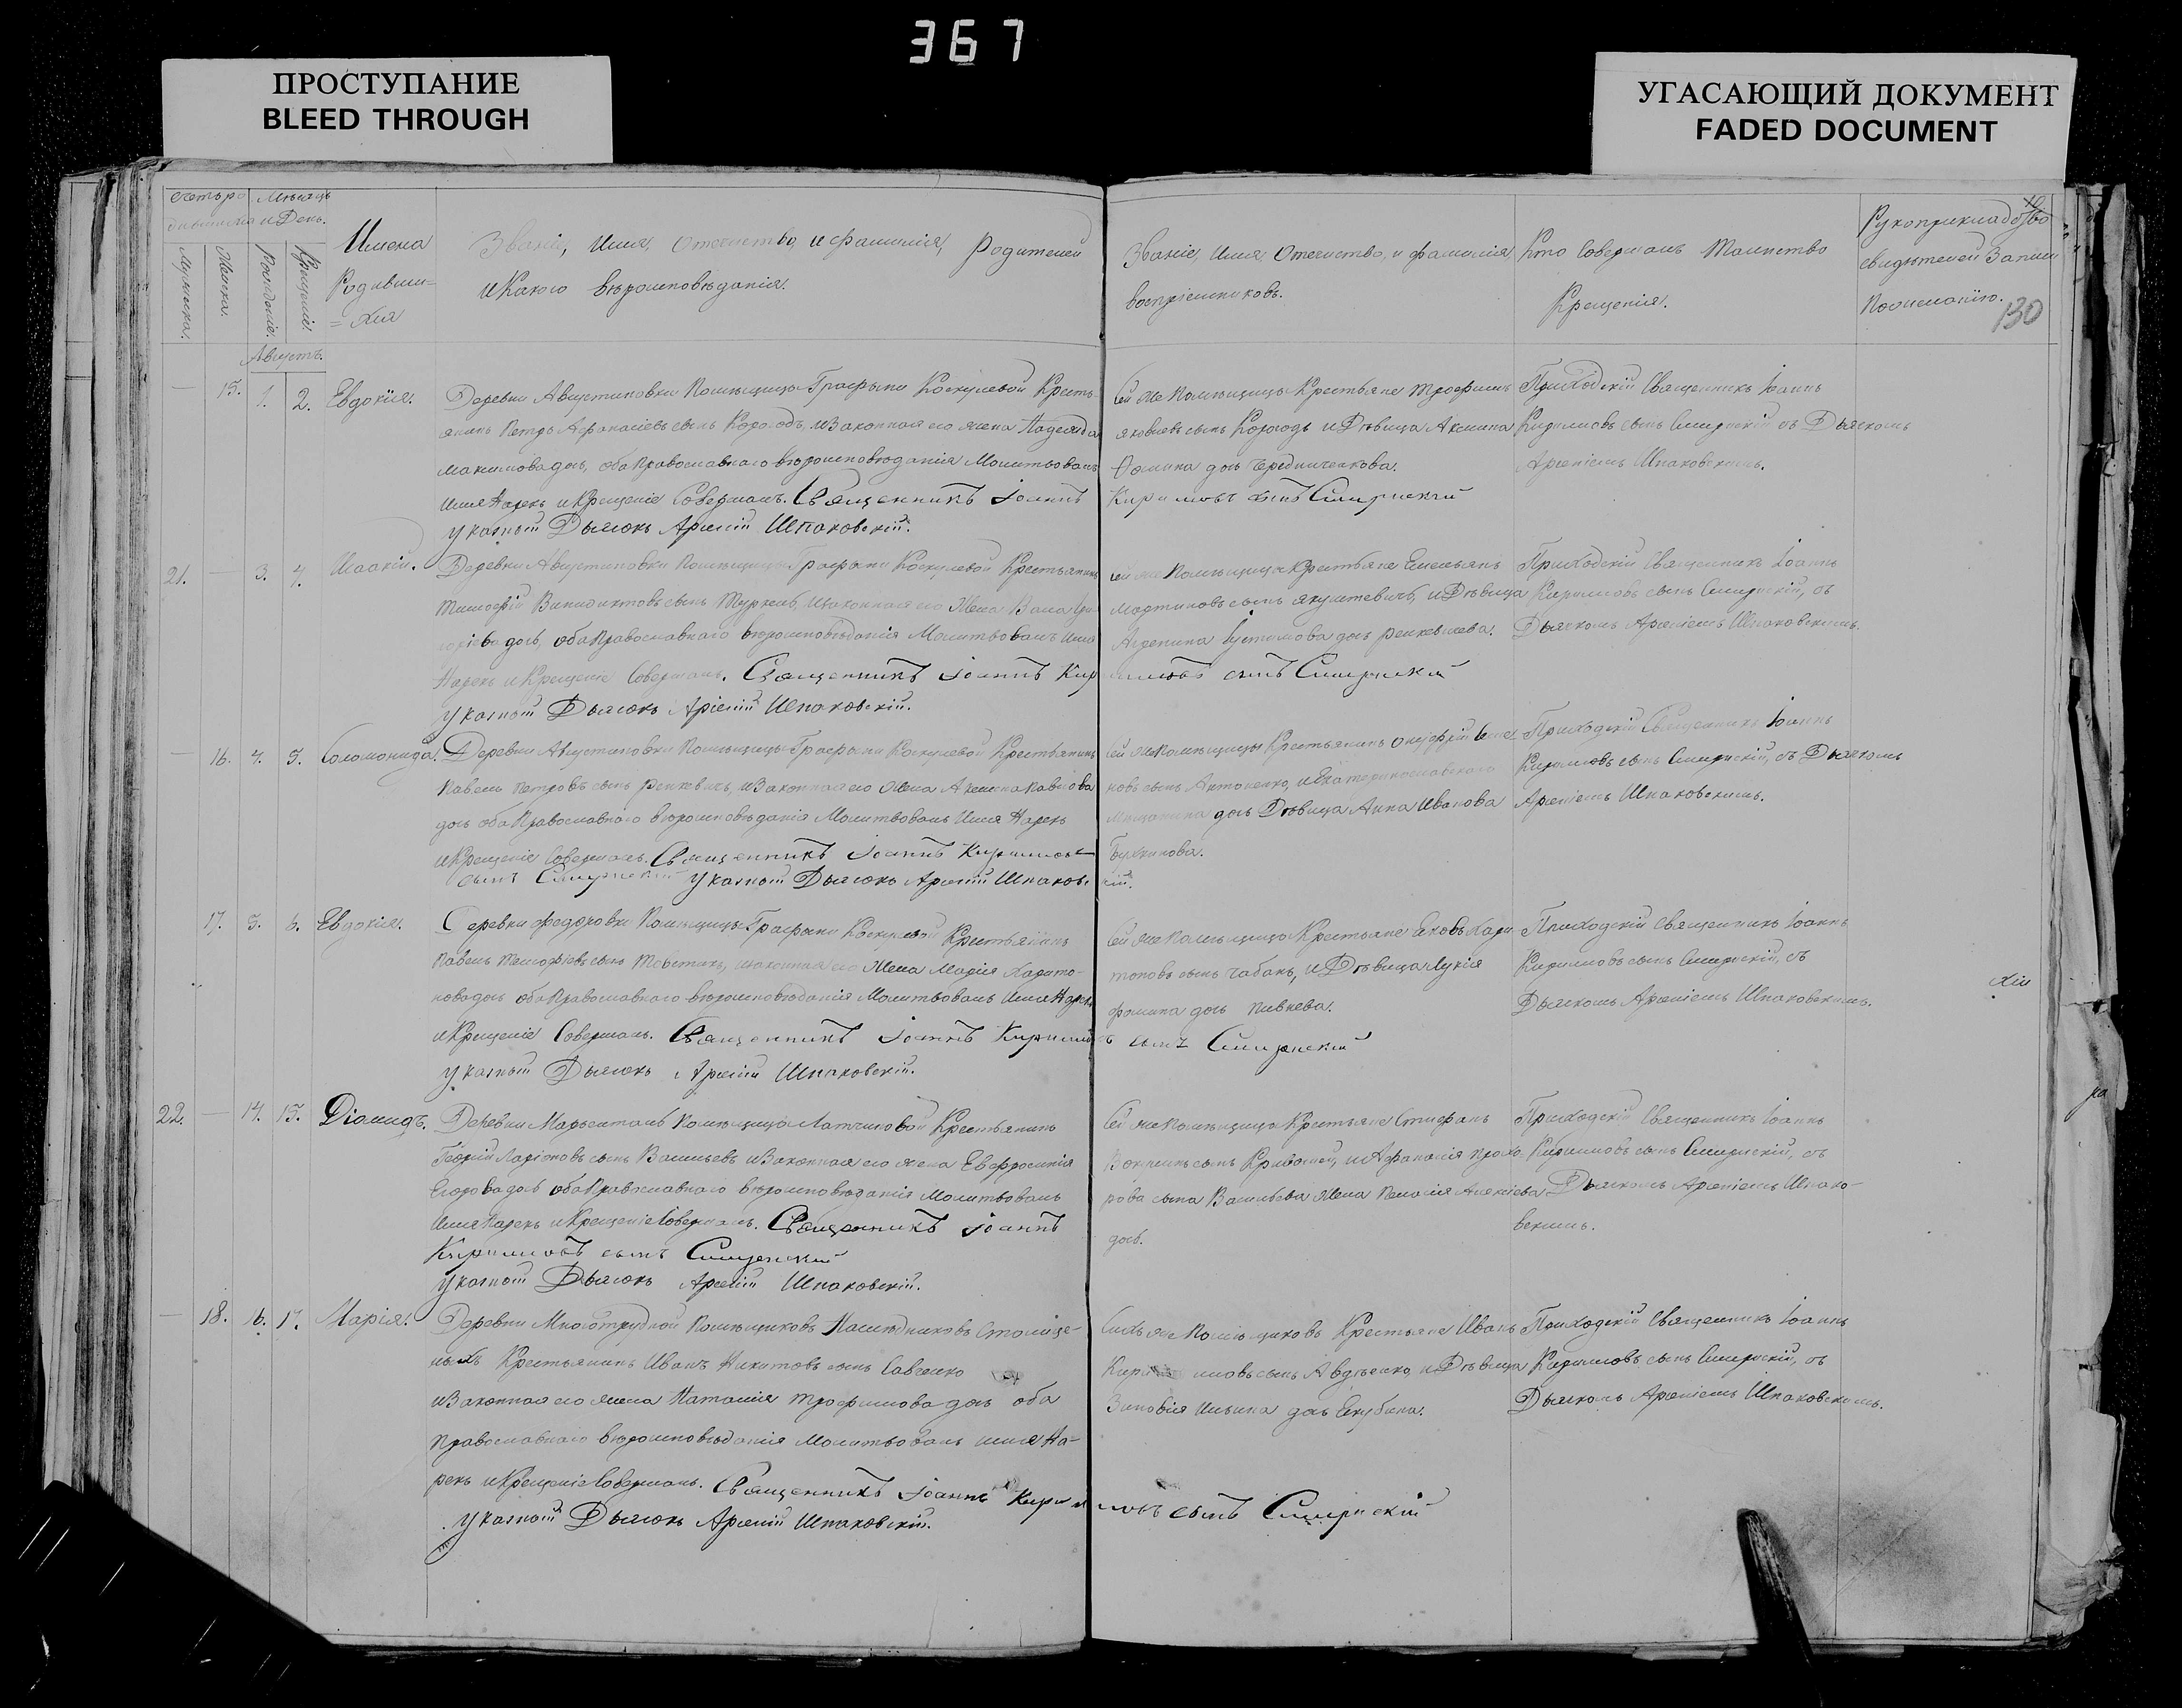 367
ПРОСТУПАНИЕ
BLEED THROUGH
УГАСАЮЩИЙ ДОКУМЕНТ
FADED DOCUMENT
130
Счетъ ро Мѣсяцъ
и День.
Мужеска.
Женска.
Рожденіе.
Крещеніе.
Имена
Родивши=
=хся
Званіе, Имя, Отечество, и фамилія, Родителей
и Какого вѣроисповѣданія.
Званіе, Имя, Отечество, и фамилія
воспріемниковъ.
Кто Совершалъ Таинство
Крещенія.
Рукоприкладство
свидѣтелей Записи
По желанію.
Августъ.
— 15. 1. 2. Евдокія.
Деревни Августиновки Помѣщицы Графыни Крестья-
янинъ Петръ Афанасіевъ сынъ Корогодъ, и Законная его жена Надежда
Максимова дочь, оба Православнаго вѣроисповѣданія Молитвовалъ
Имя Нарекъ и Крещеніе Совершалъ. Священникъ Іоаннъ
указный Дьячокъ Арсеній Шпаковскій.
Сей же Помѣщицы Крестьяне Трофимъ
Яковлевъ сынъ Корогодъ и Дѣвица Аксинья
Фомина дочь Чередниченкова.
Кириловъ сынъ
Приходскій Священникъ Іоаннъ
Кириловъ сынъ съ Дьячкомъ
Арсеніемъ Шпаковскимъ.
21. — 3. 4. Исаакій.
Деревни Августиновки Помѣщицы Графыни Крестьянинъ
Тимофій сынъ и законная его Жена
дочь, оба Православнаго вѣроисповѣданія Молитвовалъ Имя
Нарекъ и Крещеніе Совершалъ. Священникъ Іоаннъ Кир
указный Дьячокъ Арсеній Шпаковскій.
сей же Помѣщицы Крестьяне Емельянъ
Мартиновъ сынъ Якушевичъ, и Дѣвица
Агрепина Іустимова дочь
иловъ сынъ
Приходскій Священникъ Іоаннъ
Кириловъ сынъ съ
Дьячкомъ Арсеніемъ Шпаковскимъ.
— 16. 4. 5. Соломонида.
Деревни Августиновки Помѣщицы Графыни Крестьянинъ
Павелъ Петровъ сынъ Ренкевичъ, и Законная его Жена Аксинья Павлова
дочь оба Православнаго вѣроисповѣданія Молитвовалъ Имя Нарекъ
и Крещеніе Совершалъ. Священникъ Іоаннъ Кириловъ
сынъ указный Дьячокъ Арсеній Шпаковс
Сей же Помѣщицы Крестьянинъ Онуфрій
сынъ Антоненко, и Екатеринославскаго
Мѣщанина дочь Дѣвица Анна Иванова
кій.
Приходскій Священникъ Іоаннъ
Кириловъ сынъ съ Дьячкомъ
Арсеніемъ Шпаковскимъ.
17. 5. 6. Евдокія.
Деревни Федоровки Помѣщицы Графыни Крестьянинъ
Павелъ Тимофіевъ сынъ Товстикъ, и законная его Жена Марія Харито-
нова дочь оба Православнаго вѣроисповѣданія Молитвовалъ Имя Нарекъ
и Крещеніе Совершалъ. Священникъ Іоаннъ Кирило
указный Дьячокъ Арсеній Шпаковскій.
Сей же Помѣщицы Крестьяне Яковъ Хари
тоновъ сынъ Чабанъ, и Дѣвица Лукія
Фомина дочь Пивнева.
въ сынъ
Приходскій Священникъ Іоаннъ
Кириловъ сынъ съ
Дьячкомъ Арсеніемъ Шпаковскимъ.
22. — 14. 15. Діамидъ.
Деревни Марьенталь Помѣщицы Крестьянинъ
Георгій Ларіоновъ сынъ Васильевъ и Законная его жена Евфросинія
Егорова дочь оба Православнаго вѣроисповѣданія Молитвовалъ
Имя Нарекъ и Крещеніе Совершалъ. Священникъ Іоаннъ
Кириловъ сынъ
указный Дьячокъ Арсеній Шпаковскій.
Сей же Помѣщицы Крестьяне Стифанъ
сынъ и Афанасія Прохо-
рова сына Васильева Жена Пелагія Алексіева
дочь.
Приходскій Священникъ Іоаннъ
Кириловъ сынъ съ
Дьячкомъ Арсеніемъ Шпако-
вскимъ.
— 18. 16. 17. Марія.
Деревни Многотрудной Помѣщиковъ Наслѣдниковъ
Крестьянинъ Иванъ Никитовъ сынъ Савченко
и Законная его жена Наталія Трофимова дочь оба
Православнаго вѣроисповѣданія Молитвовалъ имя На-
рекъ и Крещеніе Совершалъ. Священникъ Іоаннъ Кири
указный Дьячокъ Арсеній Шпаковскій.
Сихъ же Помѣщиковъ Крестьяне Иванъ
Кириловъ сынъ Авдѣенко, и Дѣвица
Зиновія Ильина дочь
ловъ сынъ
Приходскій Священникъ Іоаннъ
Кириловъ сынъ съ
Дьячкомъ Арсеніемъ Шпаковскимъ.